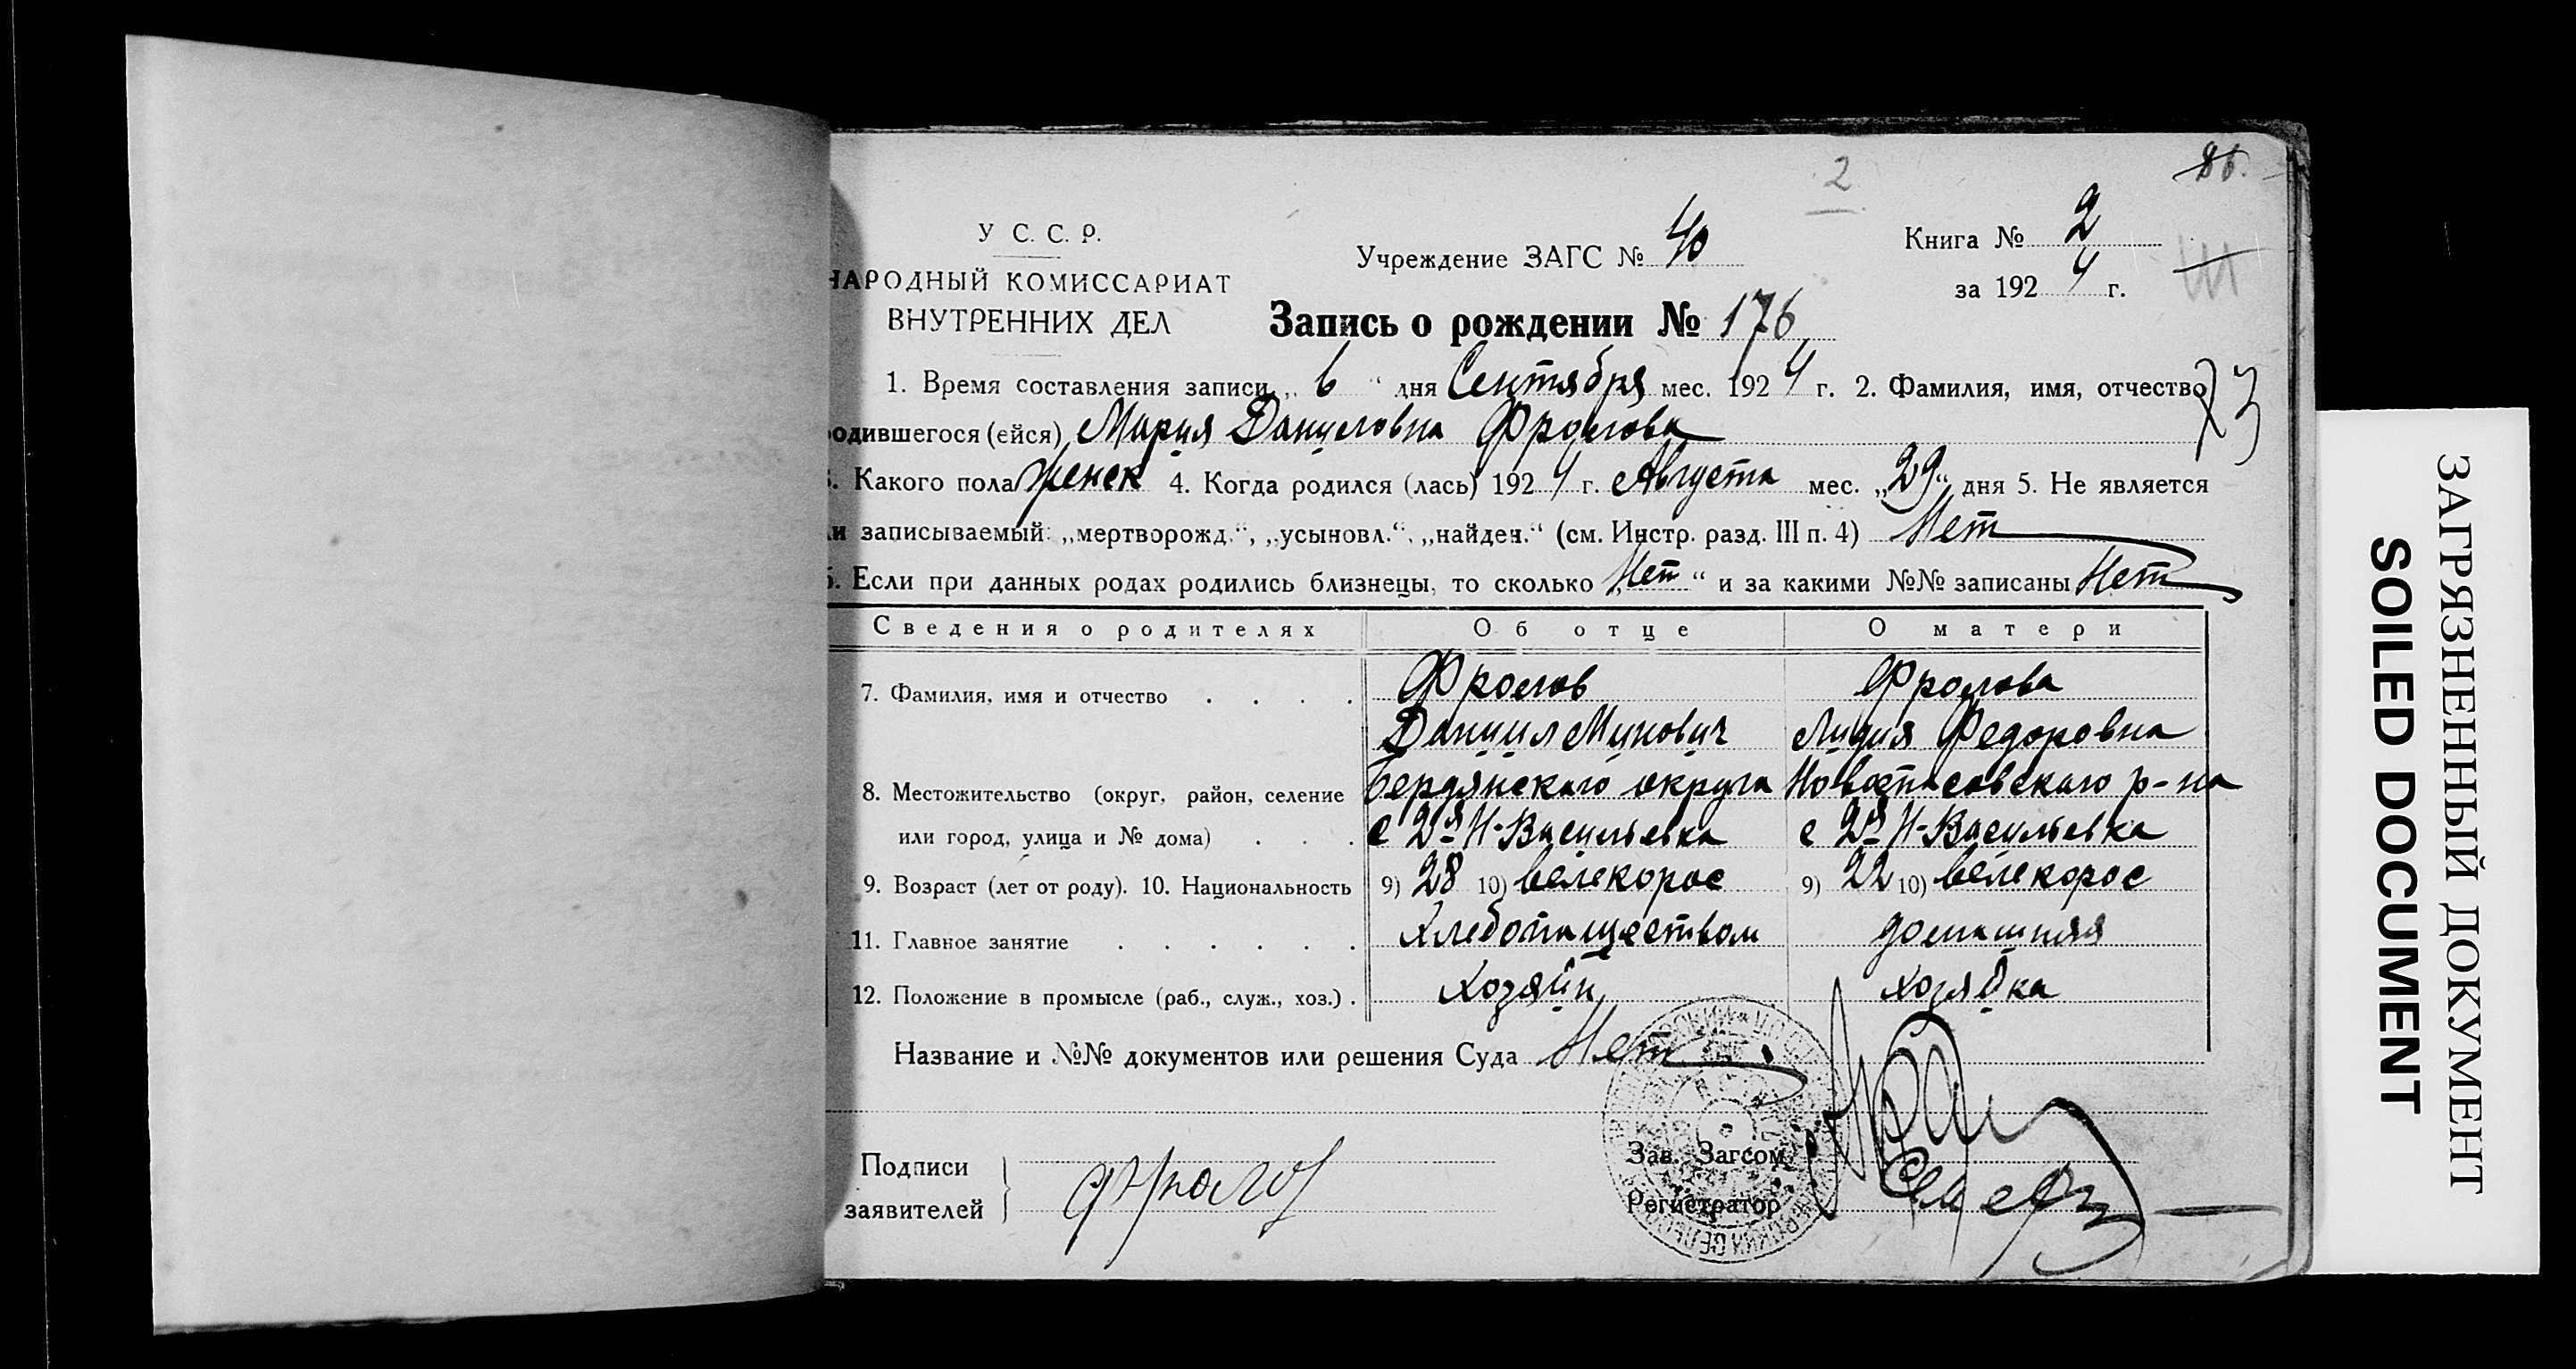 2
86.
У С. С. Р.
НАРОДНЫЙ КОМИССАРИАТ
ВНУТРЕННИХ ДЕЛ
Учреждение ЗАГС № 40
Книга № 2
за 1924 г.
Запись о рождении № 176
1. Время составления записи „ 6 “ дня Сентября мес. 1924 г. 2. Фамилия, имя, отчество
родившегося (ейся) Мария Даниловна Фролова
23
3. Какого пола женск 4. Когда родился (лась) 1924 г. Августа мес. „29“ дня 5. Не является
ли записываемый: „мертворожд.“, „усыновл.“, „найден.“ (см. Инстр. разд. III п. 4) Нет
6. Если при данных родах родились близнецы, то сколько „Нет“ и за какими №№ записаны Нет
Сведения о родителях Об отце О матери
7. Фамилия, имя и отчество . . . . Фролов Фролова
Даниил Минович Лидия Федоровна
8. Местожительство (округ, район, селение Бердянского округа Новоспасовскаго р-на
или город, улица и № дома) . . . с 2я Н-Васильевка с 2я Н-Васильевка
9. Возраст (лет от роду). 10. Национальность 9) 28 10) велекорос 9) 22 10) велекорос
11. Главное занятие . . . . . . Хлебопашеством домашняя
12. Положение в промысле (раб., служ., хоз.) . Хозяин хозяйка
Название и №№ документов или решения Суда Нет
Подписи
заявителей
Фролов
Зав. Загсом
Регистратор
ЗАГРЯЗНЕННЫЙ ДОКУМЕНТ
SOILED DOCUMENT